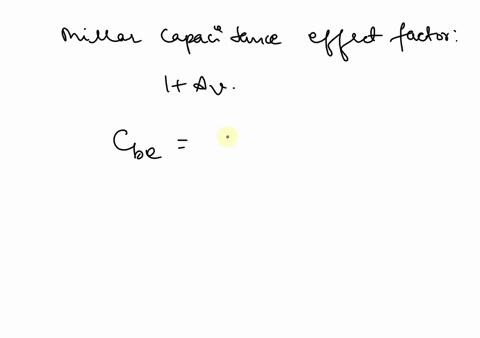 Miller Capacitance effect factor:
1+ Av.
Cbe =